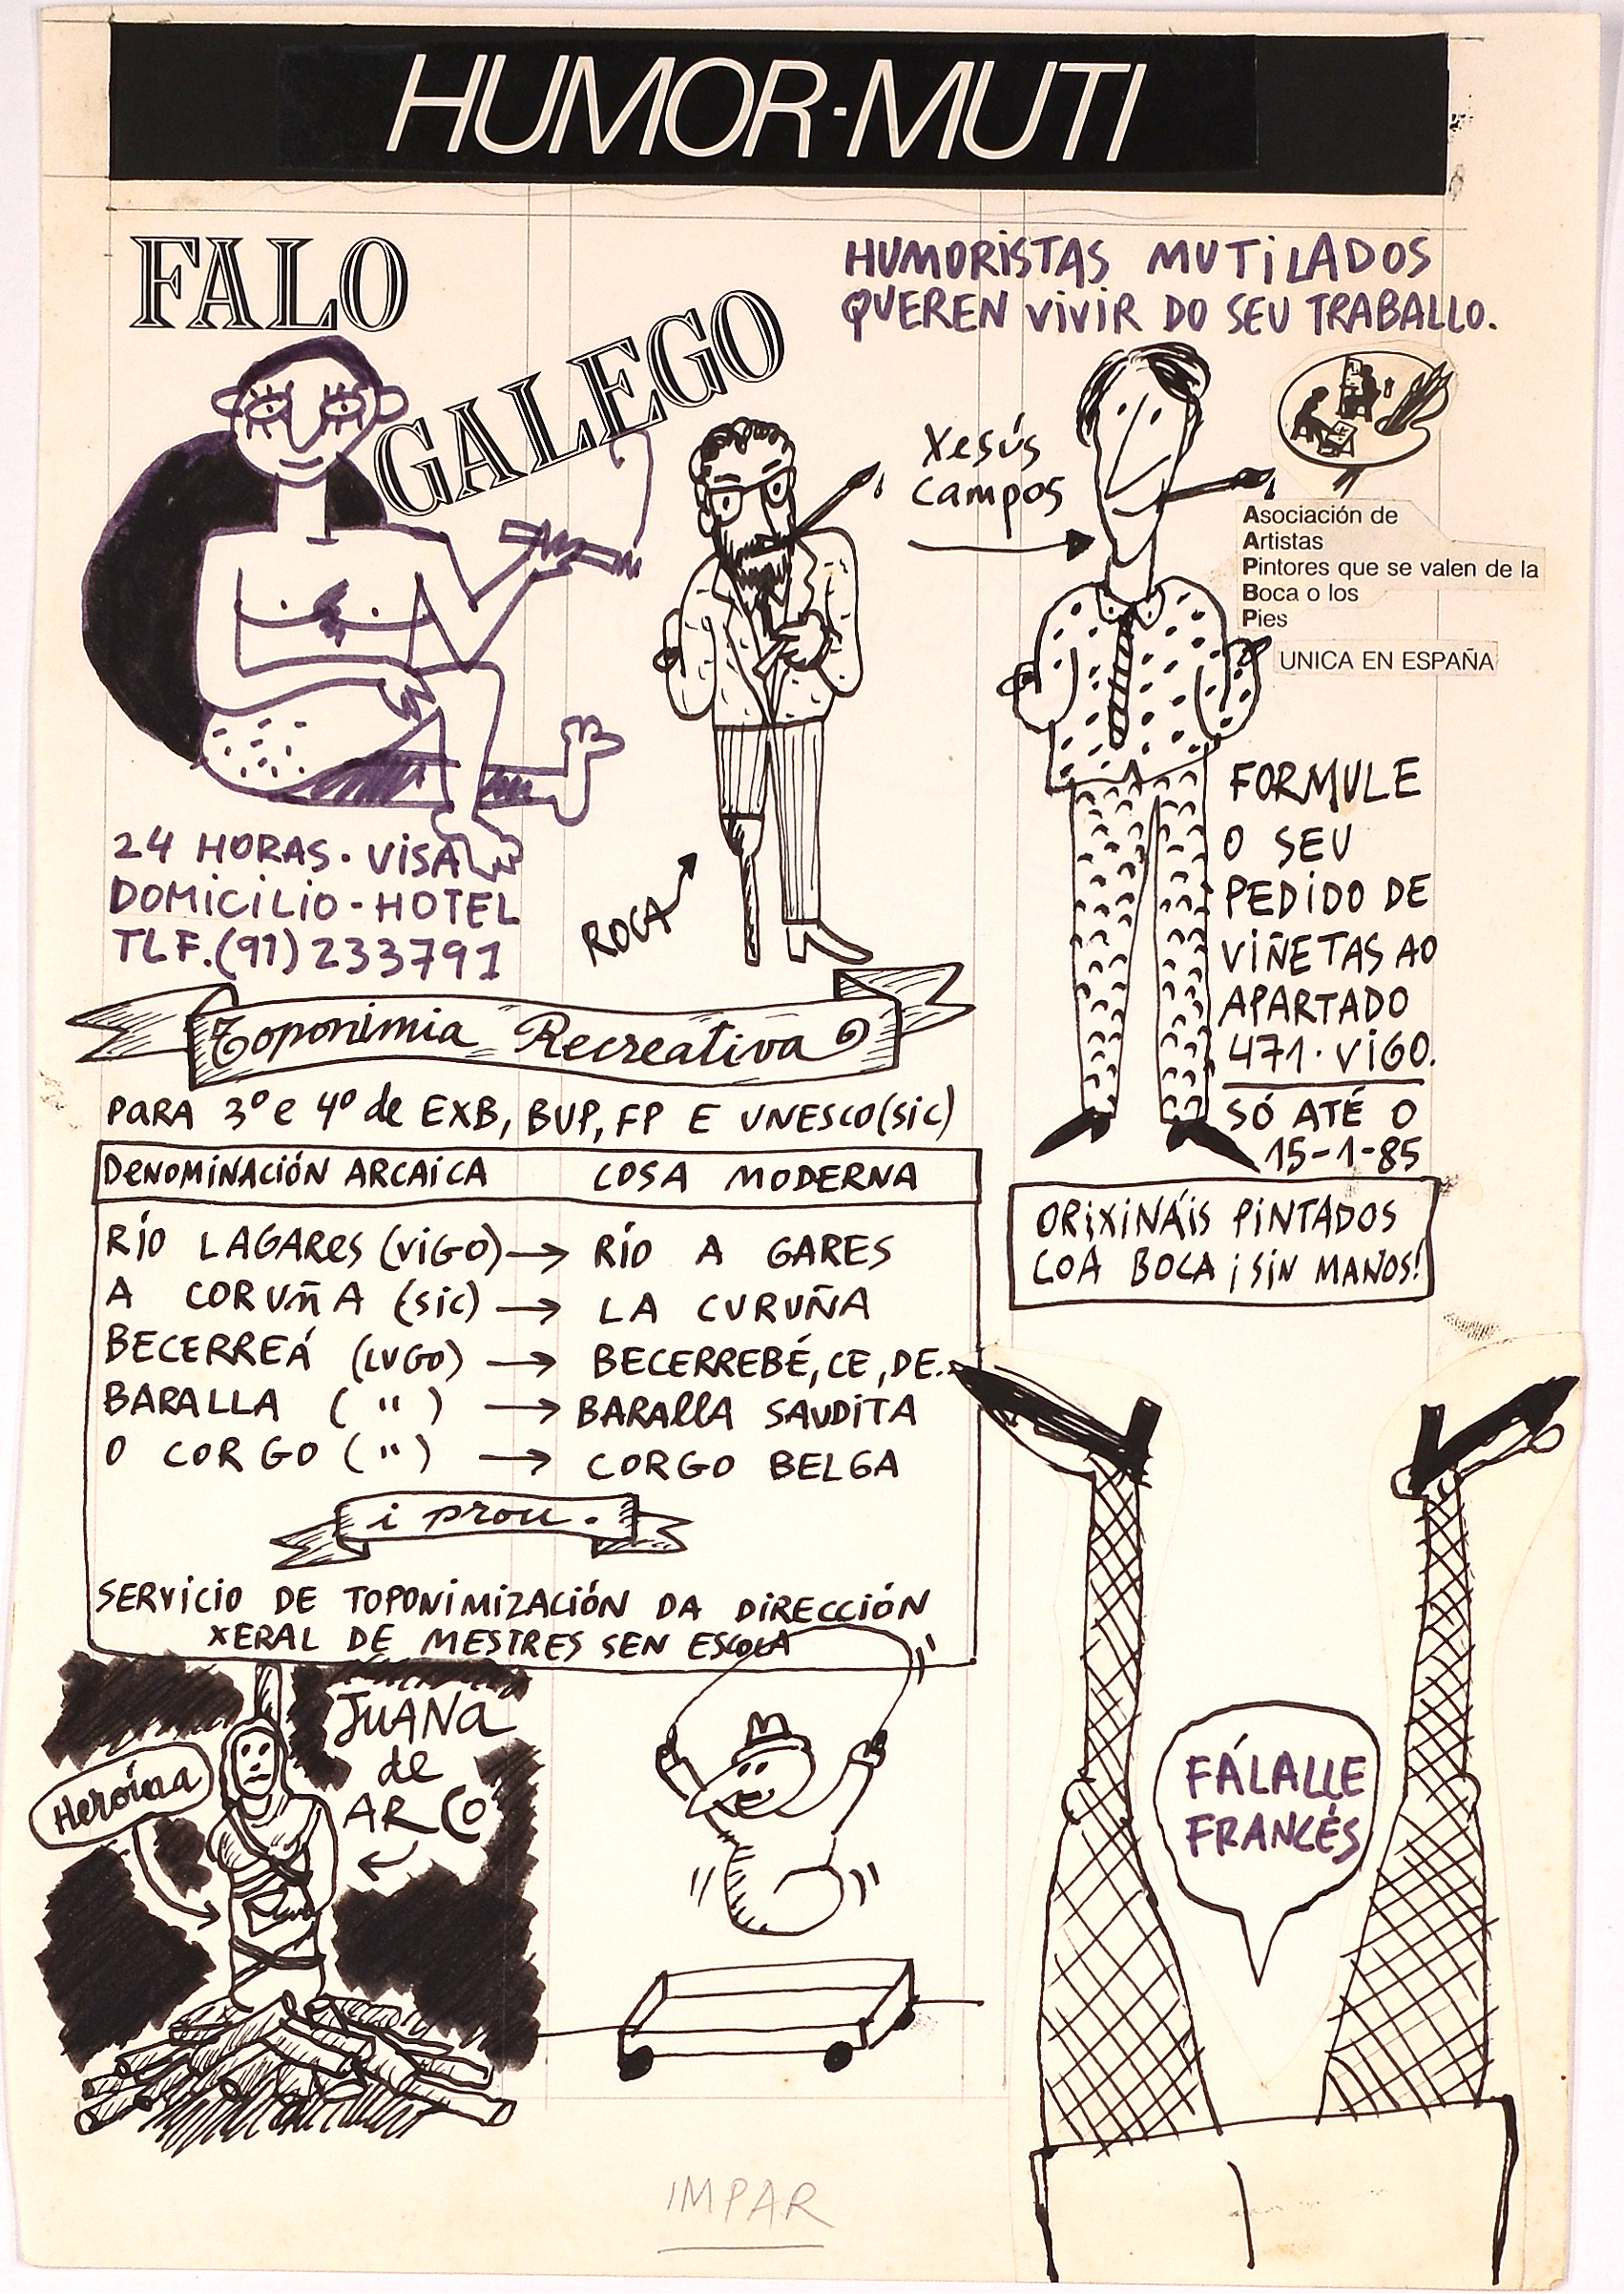 HUMOR-MUTI
FALO
GALEGO
24 HORAS. VISA
DOMICILIO-HOTEL
TLF.(91)233791
HUMORISTAS MUTILADOS
QUEREN VIVIR DO SEU TRABALLO.
Xesús
Campos
ROCA
Asociación de
Artistas
Pintores que se valen de la
Boca o los
Pies
UNICA EN ESPAÑA
FORMULE
O SEU
PEDIDO DE
VIÑETAS AO
APARTADO
471. VIGO.
SÓ ATÉ O
15-1-85
ORIXINÁIS PINTADOS
COA BOCA ¡SIN MANOS!
Toponimia Recreativa
PARA 3º e 4º de EXB, BUP, FP E UNESCO(SIC)
DENOMINACIÓN ARCAICA COSA MODERNA
RÍO LAGARES (VIGO) → RÍO A GARES
A CORUÑA (SIC) → LA CURUÑA
BECERREÁ (LUGO) → BECERREBÉ, CE, DE..
BARALLA ( " ) → BARALLA SAUDITA
O CORGO ( " ) → CORGO BELGA
i prou.
SERVICIO DE TOPONIMIZACIÓN DA DIRECCIÓN
XERAL DE MESTRES SEN ESCOLA
JUANA
de
ARCO
Heroína
FÁLALLE
FRANCÉS
IMPAR